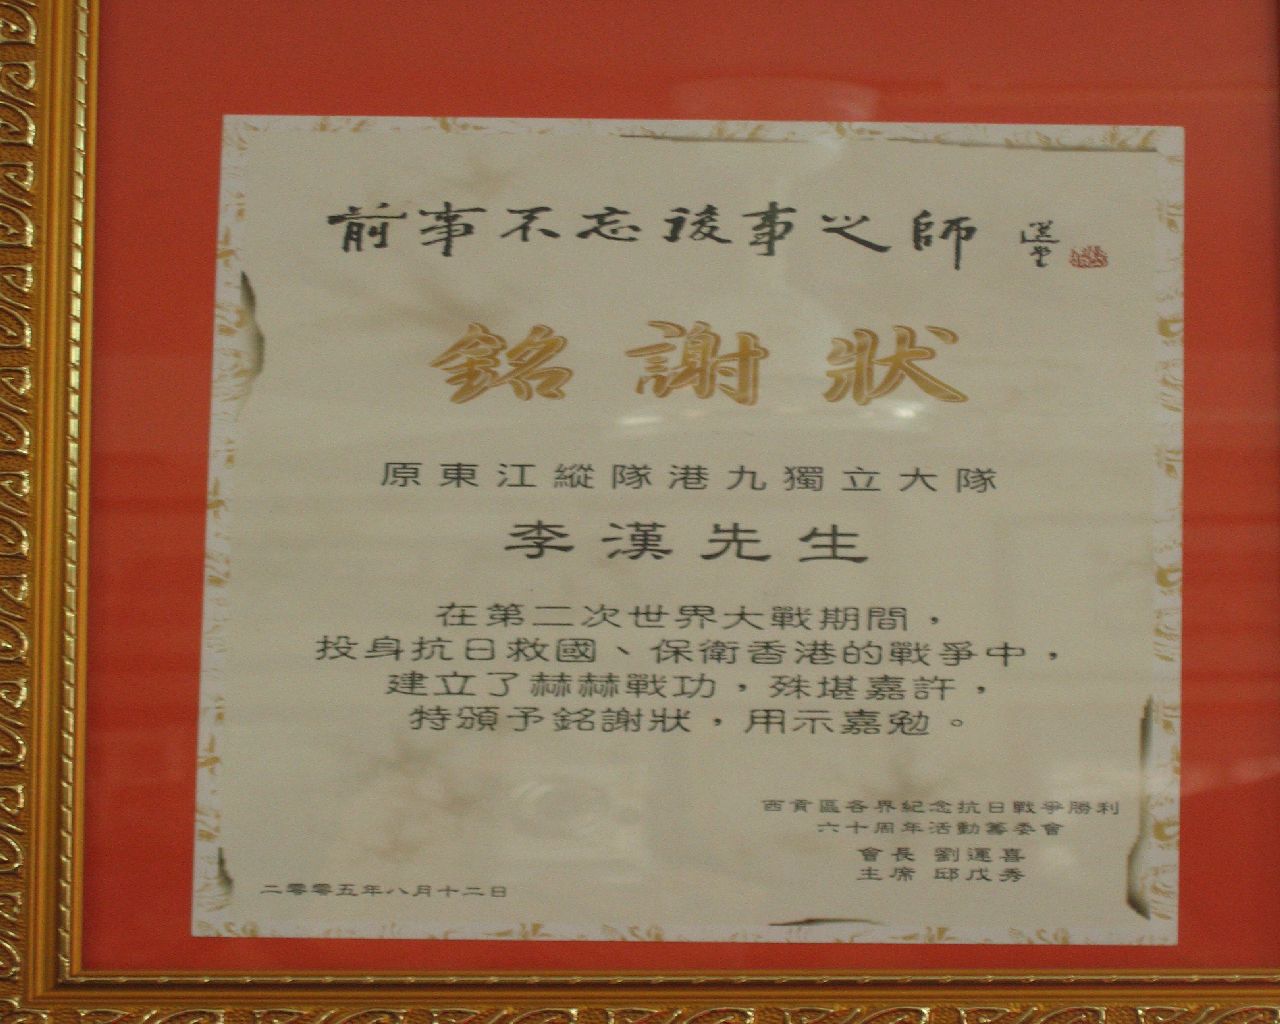 前事不忘後事之師 選堂
銘謝狀
原東江縱隊港九獨立大隊
李漢先生
在第二次世界大戰期間，
投身抗日救國、保衛香港的戰爭中，
建立了赫赫戰功，殊堪嘉許，
特頒予銘謝狀，用示嘉勉。
西貢區各界紀念抗日戰爭勝利
六十周年活動籌委會
會長 劉運喜
主席 邱戊秀
二零零五年八月十二日